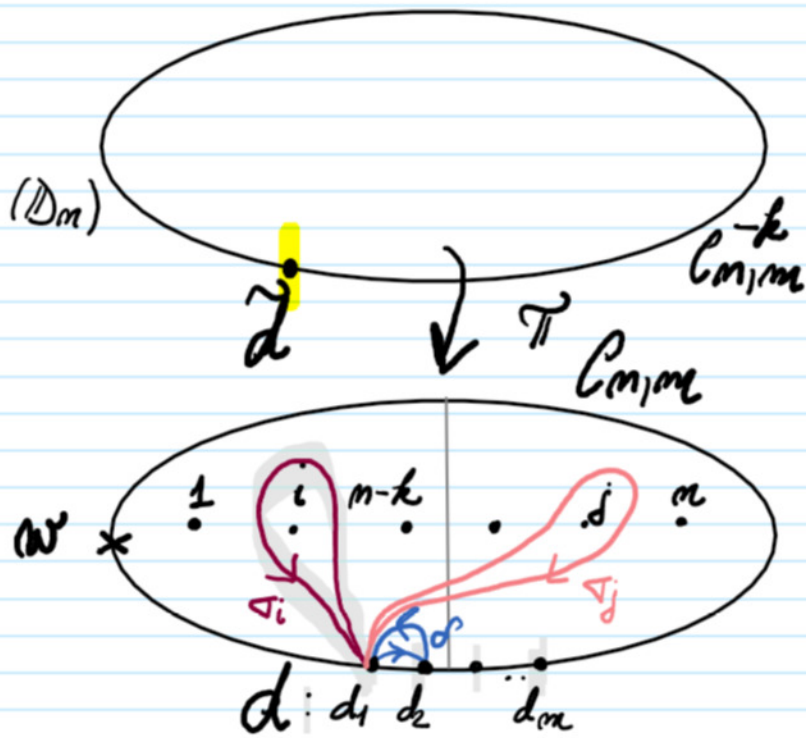 (𝔻ₙ)
C⁻ᵏₙ,ₘ
d̃
π
Cₙ,ₘ
1 i n-k j n
w
σᵢ σⱼ
d : d₁ d₂ .. dₘ